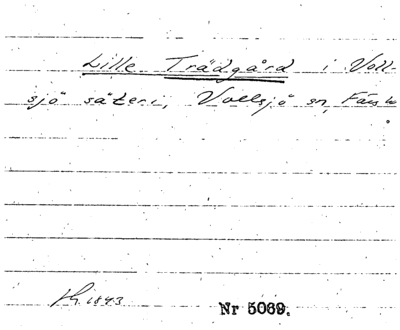 Lille Trädgård i Voll-
sjö säteri, Vollsjö sn, Färs hd
1843
Nr 5069.